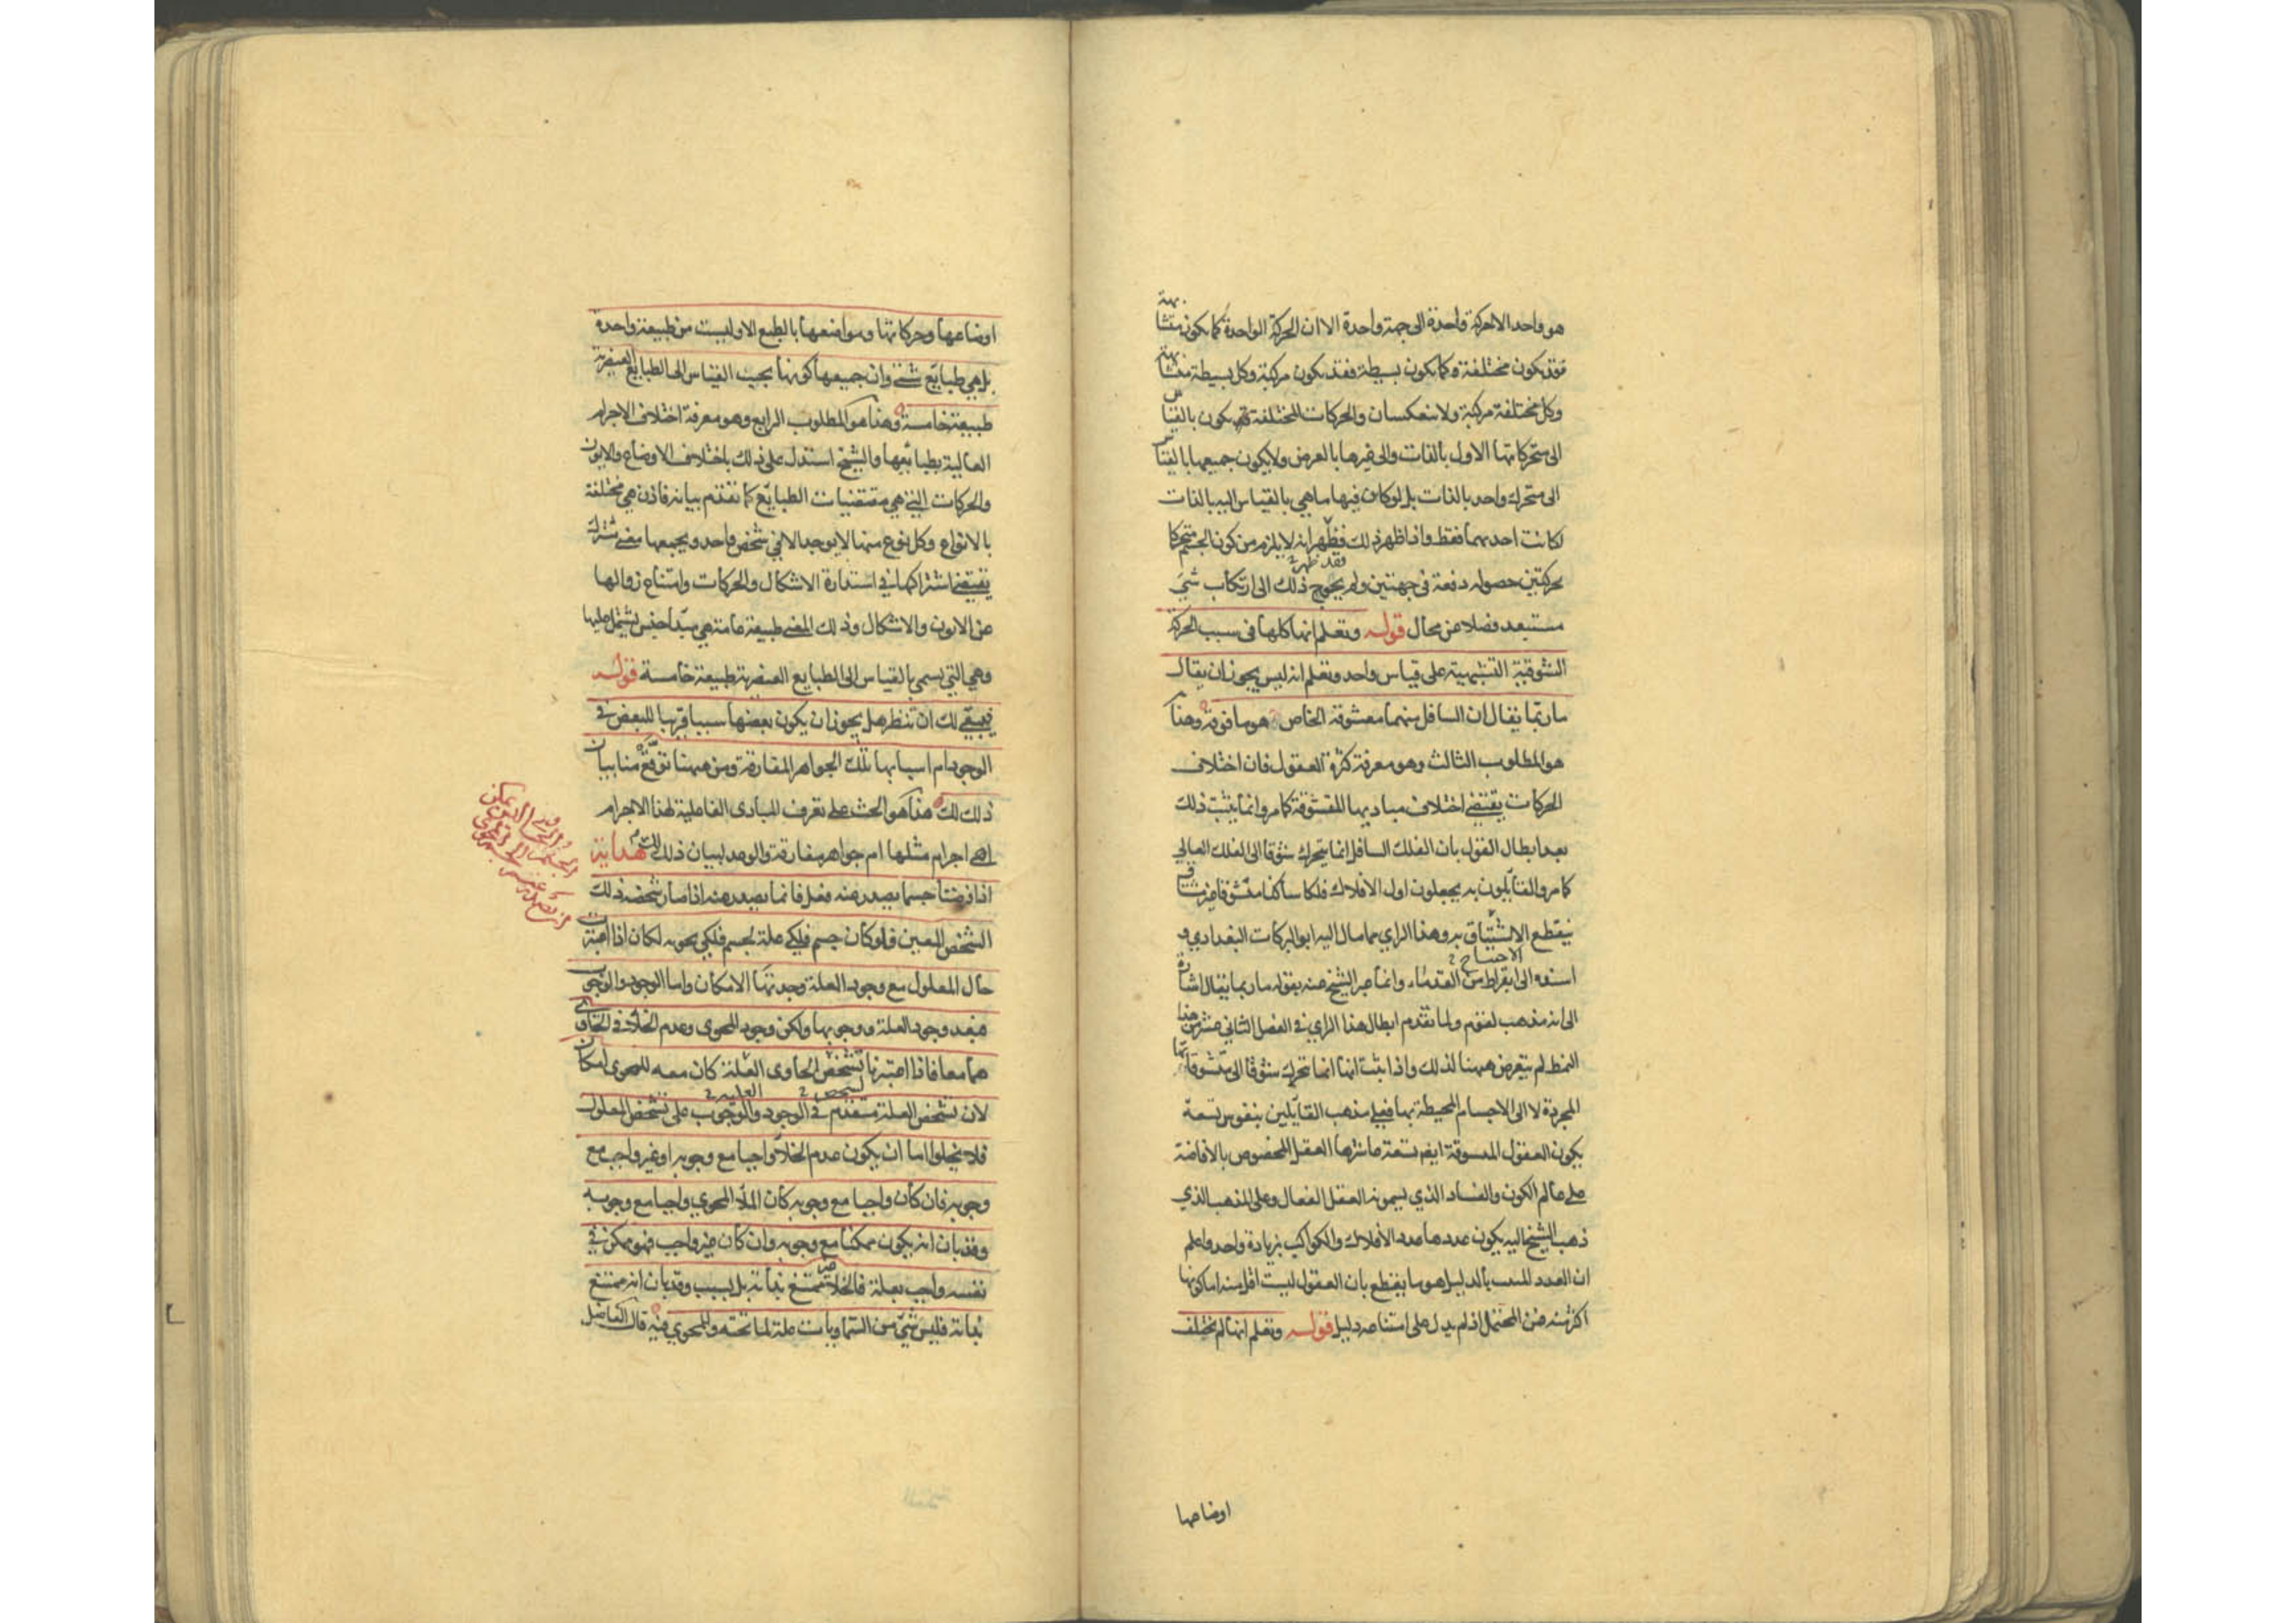 هو واحد الا حركة واحدة الى جهة واحدة الا ان الحركة الواحدة كما يكون متشابهة
فقد يكون مختلفة وكما يكون بسيطة فقد يكون مركبة وكل بسيطة متشابهة
وكل مختلفة مركبة ولا ينعكسان والحركات المختلفة يكون بالقياس
الى متحركاتها الاول بالذات والى غيرها بالعرض ولا يكون جميعها بالقياس
الى متحرك واحد بالذات بل لو كان فيها ما هي بالقياس اليه بالذات
لكانت احديهما فقط واذا ظهر ذلك فظهر انه لا يلزم من كون الجسم متحركا
فقد ظهر
بحركتين حصوله دفعة في جهتين ولم يحوج ذلك الى ارتكاب شئ
مستبعد فضلا عن محال قوله وتعلم انها كلها في سبب الحركة
الشوقية التشبهية على قياس واحد وتعلم انه ليس يجوز ان يقال
ما ربما يقال ان السافل منهما معشوقه الخاص هو ما فوقه وهذا
هو المطلوب الثالث وهو معرفة كثرة العقول فان اختلاف
الحركات يقتضي اختلاف مباديها المتشوقة كما مر وانما يثبت ذلك
بعد ابطال القول بان الفلك السافل انما يتحرك شوقا الى الفلك العالي
كما مر والقائلون به يجعلون اول الافلاك فلكا ساكنا معشوقا غير مشتاق
ينقطع الاشتياق به وهذا الراي مما مال اليه ابو البركات البغدادي و
الاحتياج
اسنده الى ابقراط من القدماء وانما عبر الشيخ عنه بقوله ما ربما يقال اشارة
الى انه مذهب لقوم ولما تقدم ابطال هذا الراي في الفصل الثاني عشر من هذا
النمط لم يتعرض ههنا لذلك واذا ثبت انها انما تتحرك شوقا الى متشوقاتها
المجردة لا الى الاجسام المحيطة بها فعلى مذهب القائلين بنفوس تسعة
يكون العقول المسوقة ايضا تسعة عاشرها العقل المخصوص بالافاضة
على عالم الكون والفساد الذي يسمونه العقل الفعال وعلى المذهب الذي
ذهب الشيخ اليه يكون عددها عدد الافلاك والكواكب بزيادة واحد واعلم
ان العدد المثبت بالدليل هو ما يقطع بان العقول ليست اقل منه اما كونها
اكثر منه فمن المحتمل اذ لم يدل على امتناعه دليل قوله وتعلم انها لم تختلف
اوضاعها
اوضاعها وحركاتها ومواضعها بالطبع الا وليست من طبيعة واحدة
بل هي طبايع شتى وان جمعها كونها بحسب القياس الى الطبايع العنصرية
طبيعة خامسة وهذا هو المطلوب الرابع وهو معرفة اختلاف الاجرام
العالية بطبائعها والشيخ استدل على ذلك باختلاف الاوضاع والايون
والحركات التي هي مقتضيات الطبايع كما تقدم بيانه فاذن هي مختلفة
بالانواع وكل نوع منها لا يوجد الا في شخص واحد ويجمعها معنى مشترك
يقتضي اشتراكها في استدارة الاشكال والحركات وامتناع زوالها
عن الايون والاشكال وذلك المعنى طبيعة عامة هي مبدأ جنس يشتمل عليها
وهي التي يسمى بالقياس الى الطبايع العنصرية طبيعة خامسة قوله
فيبقى لك ان تنظر هل يجوز ان يكون بعضها سببا قريبا للبعض في
الوجود ام اسبابها تلك الجواهر المفارقة ومن ههنا توقع منا بيان
ذلك لك هذا هو الحث على تعرف المبادى الفاعلية لهذا الاجرام
اهي اجرام مثلها ام جواهر مفارقة والوعد لبيان ذلك هداية
اذا فرضنا جسما يصدر عنه فعل فانما يصدر عنه اذا صار شخصه ذلك
الشخص المعين فلو كان جسم فلكي علة لجسم فلكي يحويه لكان اذا اعتبرت
حال المعلول مع وجود العلة وجدتها الامكان واما الوجود والوجوب
فبعد وجود العلة ووجوبها ولكن وجود المحوى وعدم الخلاء في الحاوى
هما معا فاذا اعتبرنا تشخص الحاوى العلة كان معه للمحوى امكان
لتشخص العلية
لان تشخص العلة متقدم في الوجود والوجوب على تشخص المعلول
فلا يخلوا اما ان يكون عدم الخلاء واجبا مع وجوبه او غير واجب مع
وجوبه فان كان واجبا مع وجوبه كان الملاء المحوي واجبا مع وجوبه
وقد بان انه يكون ممكنا مع وجوبه وان كان غير واجب فهو ممكن في
نفسه واجب بعلة فالخلاء غير ممتنع بذاته بل بسبب وقد بان انه ممتنع
بذاته فليس شئ من السماويات علة لما تحته وللمحوي فيه قال الفاضل